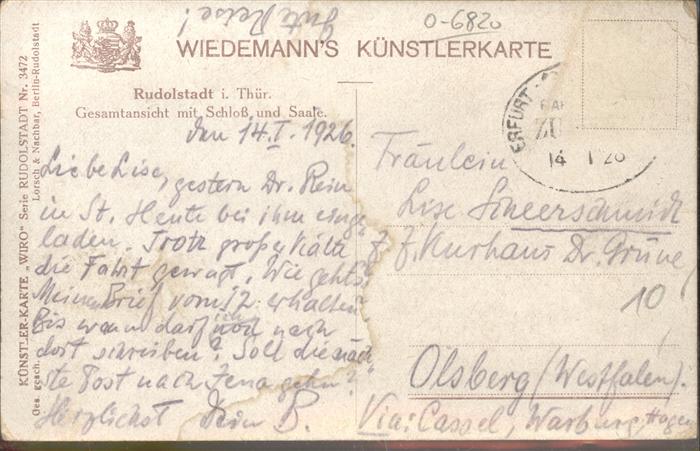 Gute Reise!
0-6820
WIEDEMANN'S KÜNSTLERKARTE
Rudolstadt i. Thür.
Gesamtansicht mit Schloß und Saale.
KÜNSTLER-KARTE „WIRO“ Serie RUDOLSTADT Nr. 3472
Ges. gesch. Lorsch & Nachbar, Berlin-Rudolstadt
den 14.I.1926.
Liebe Lise, gestern Dr. Rein
in St. Heute bei ihm einge
laden. Trotz großer Kälte
die Fahrt gewagt. Wie gehts?
Meinen Brief vom 12. erhalten?
Bis wann darf ich noch nach
dort schreiben? Soll die näch
ste Post nach Jena gehn?
Herzlichst Dein B.
ERFURT
ZU
14 1 26
Fräulein
Lise
z. Z. Kurhaus Dr. Grüne
10
Olsberg (Westfalen).
Via: Cassel, Warburg, Hagen